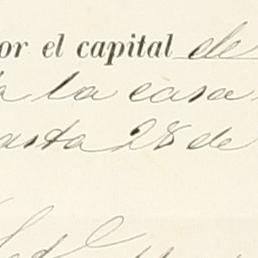 or el capital de
a la casa
asta 28 de